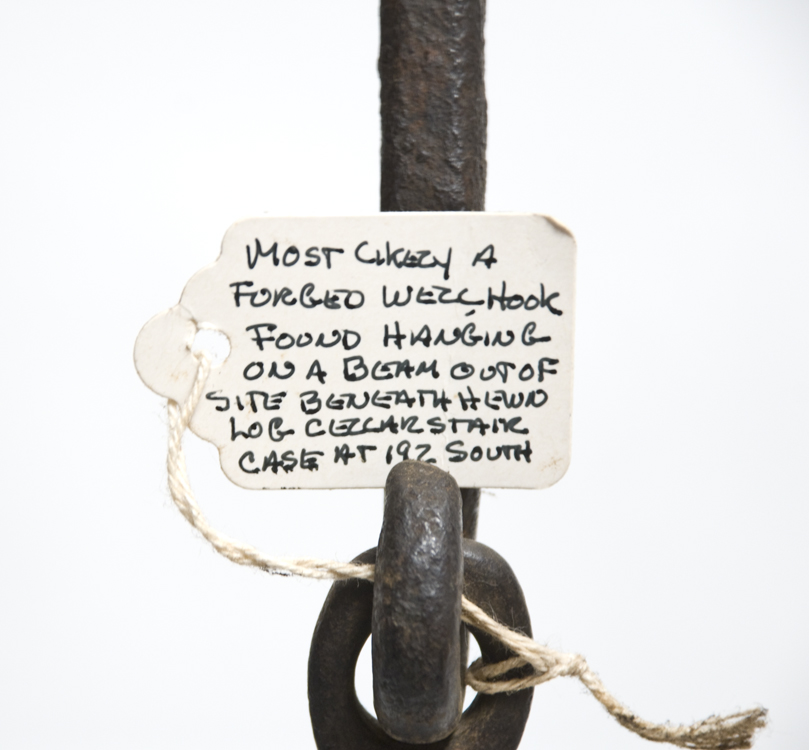 MOST LIKELY A
FORGED WELL HOOK
FOUND HANGING
ON A BEAM OUT OF
SITE BENEATH HEWN
LOG CELLAR STAIR
CASE AT 192 SOUTH